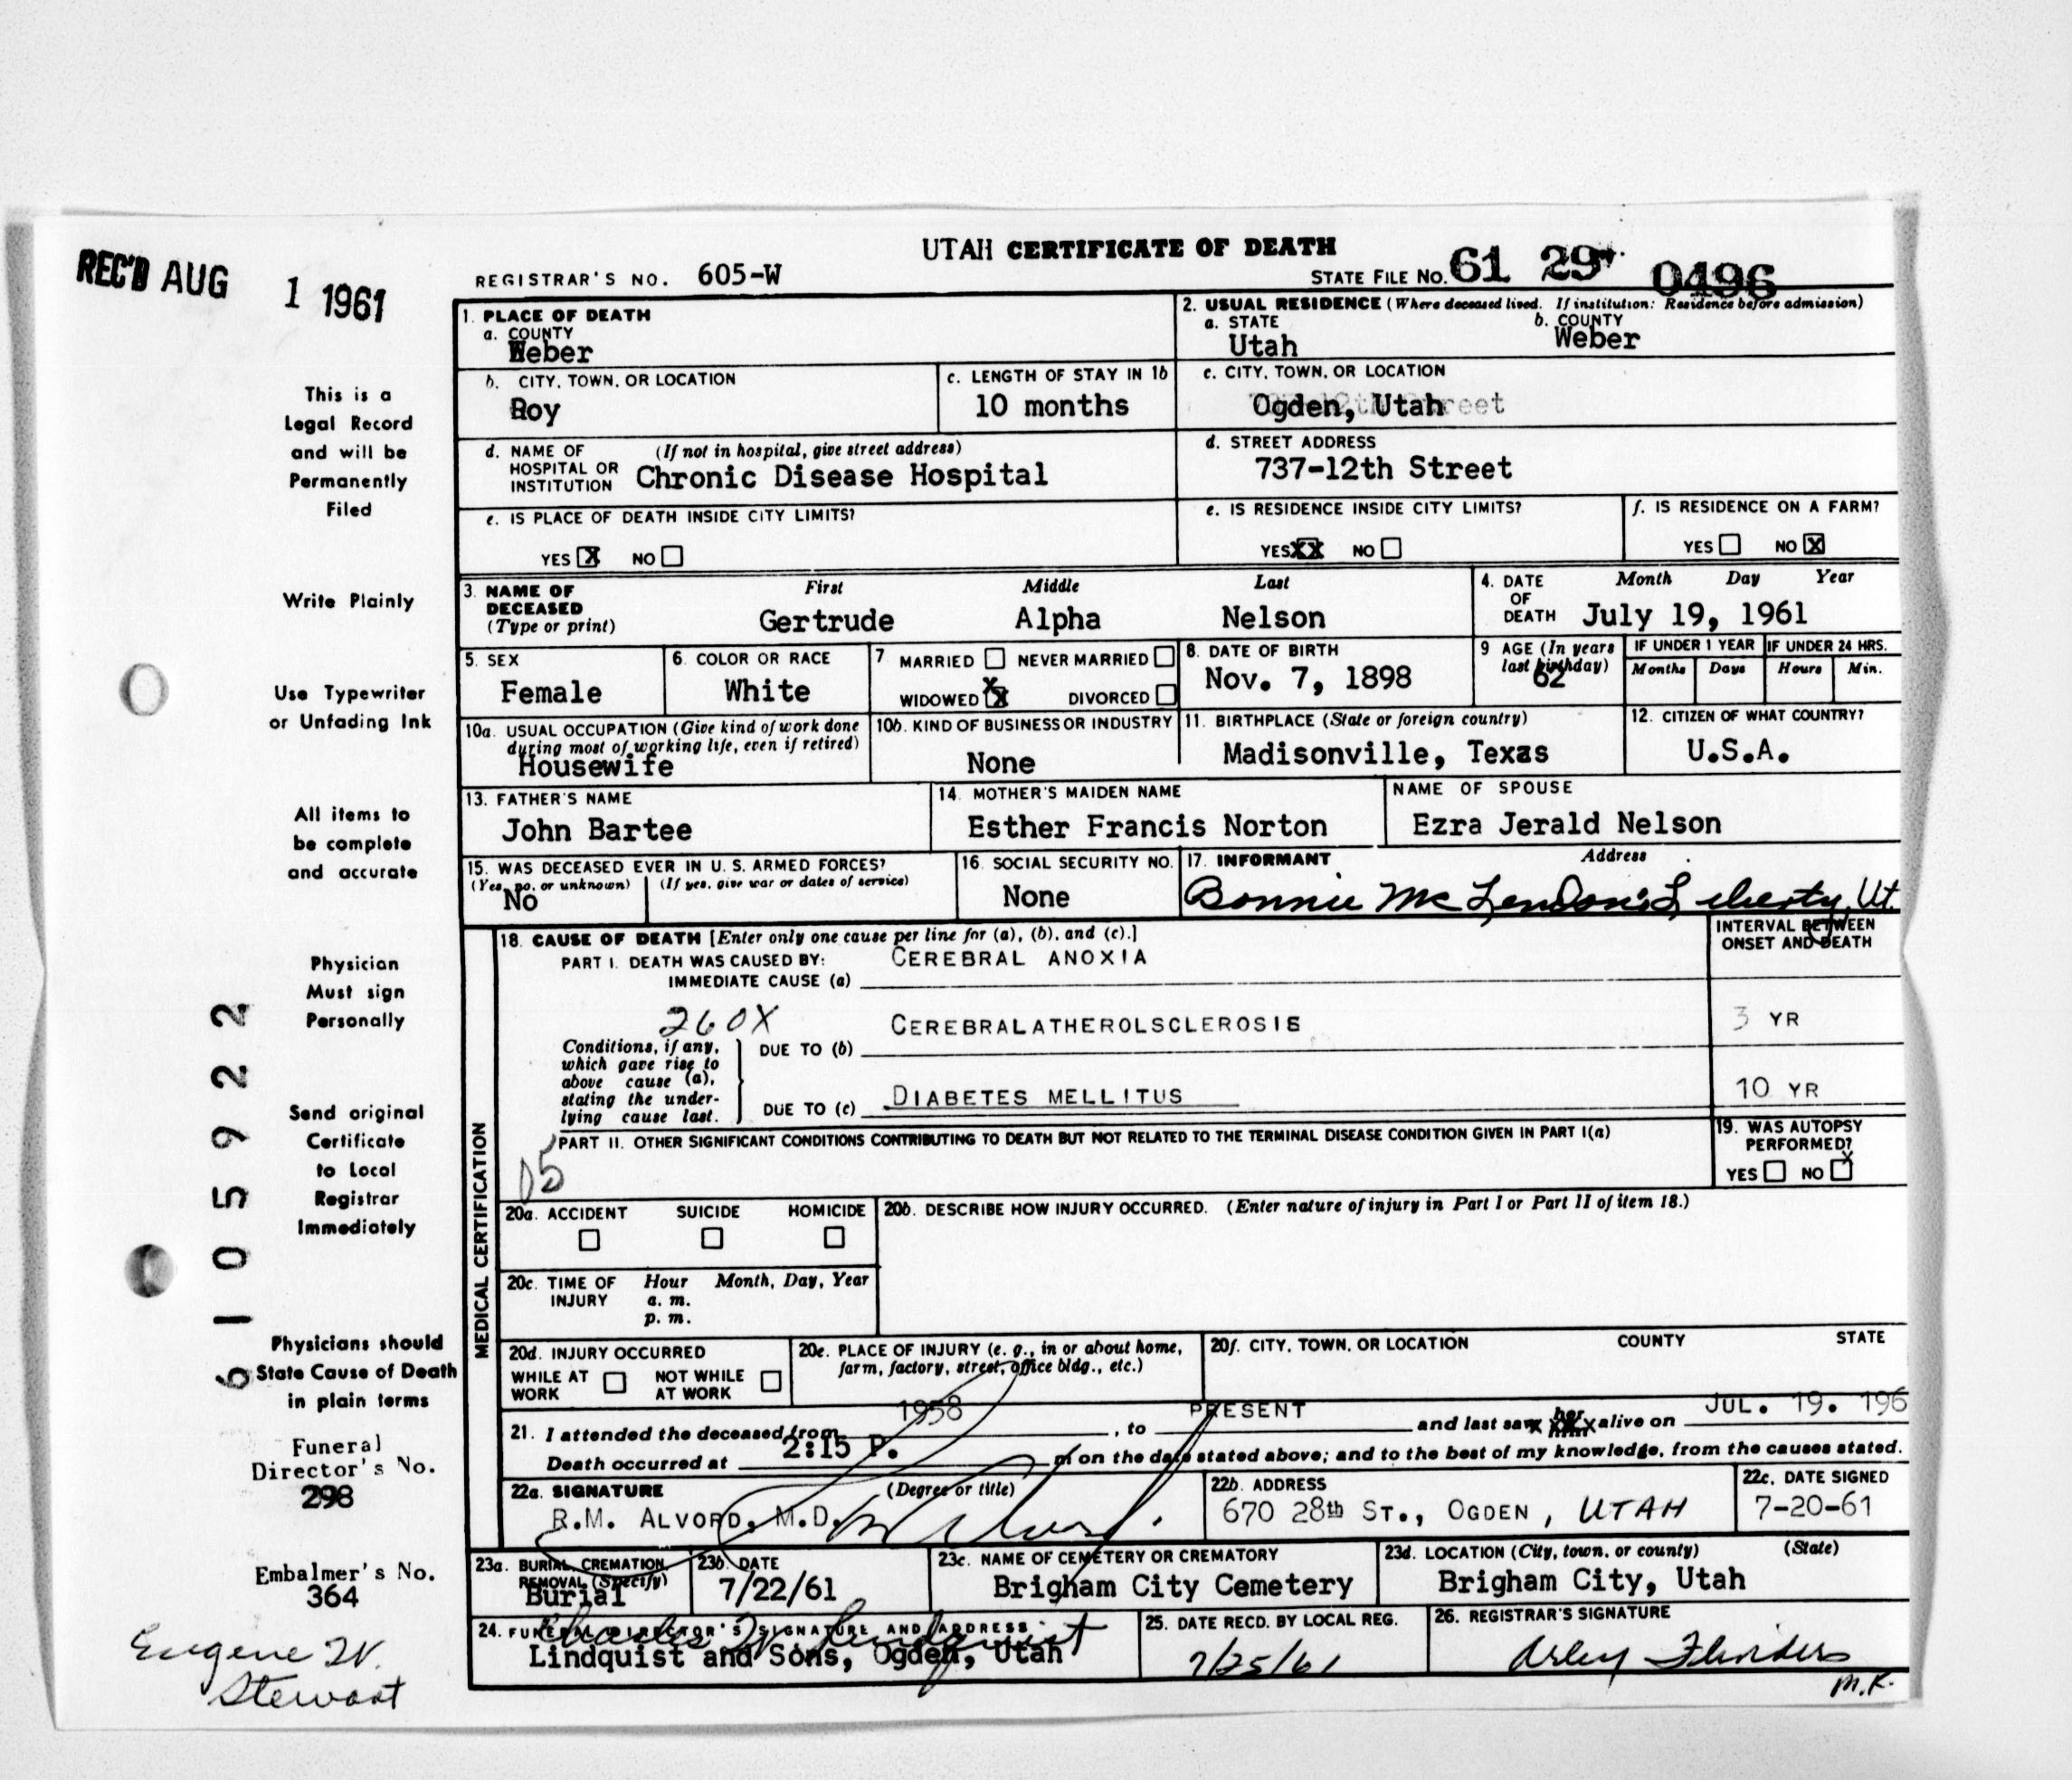 UTAH CERTIFICATE OF DEATH
REC'D AUG 1 1961
REGISTRAR'S NO. 605-W
STATE FILE NO. 61 29 0496
This is a
Legal Record
and will be
Permanently
Filed
Write Plainly
Use Typewriter
or Unfading Ink
All items to
be complete
and accurate
Physician
Must sign
Personally
Send original
Certificate
to Local
Registrar
Immediately
Physicians should
State Cause of Death
in plain terms
Funeral
Director's No.
298
Embalmer's No.
364
Eugene W.
Stewart
6105922
1. PLACE OF DEATH
a. COUNTY
Weber
2. USUAL RESIDENCE (Where deceased lived. If institution: Residence before admission)
a. STATE
Utah
b. COUNTY
Weber
b. CITY, TOWN, OR LOCATION
Roy
c. LENGTH OF STAY IN 1b
10 months
c. CITY, TOWN, OR LOCATION
Ogden, Utah
d. NAME OF HOSPITAL OR INSTITUTION
(If not in hospital, give street address)
Chronic Disease Hospital
d. STREET ADDRESS
737-12th Street
e. IS PLACE OF DEATH INSIDE CITY LIMITS?
YES X NO
e. IS RESIDENCE INSIDE CITY LIMITS?
YES XX NO
f. IS RESIDENCE ON A FARM?
YES NO X
3. NAME OF DECEASED
(Type or print)
First Middle Last
Gertrude Alpha Nelson
4. DATE OF DEATH
Month Day Year
July 19, 1961
5. SEX
Female
6. COLOR OR RACE
White
7 MARRIED NEVER MARRIED
WIDOWED X DIVORCED
8. DATE OF BIRTH
Nov. 7, 1898
9 AGE (In years last birthday)
62
IF UNDER 1 YEAR
Months Days
IF UNDER 24 HRS.
Hours Min.
10a. USUAL OCCUPATION (Give kind of work done during most of working life, even if retired)
Housewife
10b. KIND OF BUSINESS OR INDUSTRY
None
11. BIRTHPLACE (State or foreign country)
Madisonville, Texas
12. CITIZEN OF WHAT COUNTRY?
U.S.A.
13. FATHER'S NAME
John Bartee
14. MOTHER'S MAIDEN NAME
Esther Francis Norton
NAME OF SPOUSE
Ezra Jerald Nelson
15. WAS DECEASED EVER IN U.S. ARMED FORCES?
(Yes, no, or unknown) (If yes, give war or dates of service)
No
16. SOCIAL SECURITY NO.
None
17. INFORMANT Address
Bonnie McLendon Liberty, Ut
MEDICAL CERTIFICATION
18. CAUSE OF DEATH [Enter only one cause per line for (a), (b), and (c).]
INTERVAL BETWEEN
ONSET AND DEATH
PART I. DEATH WAS CAUSED BY:
IMMEDIATE CAUSE (a)
CEREBRAL ANOXIA
260X
Conditions, if any,
which gave rise to
above cause (a),
stating the under-
lying cause last.
DUE TO (b)
CEREBRALATHEROLSCLEROSIS
3 YR
DUE TO (c)
DIABETES MELLITUS
10 YR
PART II. OTHER SIGNIFICANT CONDITIONS CONTRIBUTING TO DEATH BUT NOT RELATED TO THE TERMINAL DISEASE CONDITION GIVEN IN PART I(a)
19. WAS AUTOPSY PERFORMED?
YES NO X
20a. ACCIDENT SUICIDE HOMICIDE
20b. DESCRIBE HOW INJURY OCCURRED. (Enter nature of injury in Part I or Part II of item 18.)
20c. TIME OF INJURY
Hour Month, Day, Year
a. m.
p. m.
20d. INJURY OCCURRED
WHILE AT WORK NOT WHILE AT WORK
20e. PLACE OF INJURY (e. g., in or about home, farm, factory, street, office bldg., etc.)
20f. CITY, TOWN, OR LOCATION COUNTY STATE
21. I attended the deceased from 1958, to PRESENT and last saw her alive on JUL. 19. 196
Death occurred at 2:15 P. m on the date stated above; and to the best of my knowledge, from the causes stated.
22a. SIGNATURE (Degree or title)
R.M. ALVORD, M.D.
22b. ADDRESS
670 28th ST., OGDEN, UTAH
22c. DATE SIGNED
7-20-61
23a. BURIAL, CREMATION, REMOVAL (Specify)
Burial
23b. DATE
7/22/61
23c. NAME OF CEMETERY OR CREMATORY
Brigham City Cemetery
23d. LOCATION (City, town, or county) (State)
Brigham City, Utah
24. FUNERAL DIRECTOR'S SIGNATURE AND ADDRESS
Charles W. Lindquist
Lindquist and Sons, Ogden, Utah
25. DATE RECD. BY LOCAL REG.
7/25/61
26. REGISTRAR'S SIGNATURE
Arley Flinders
M.K.